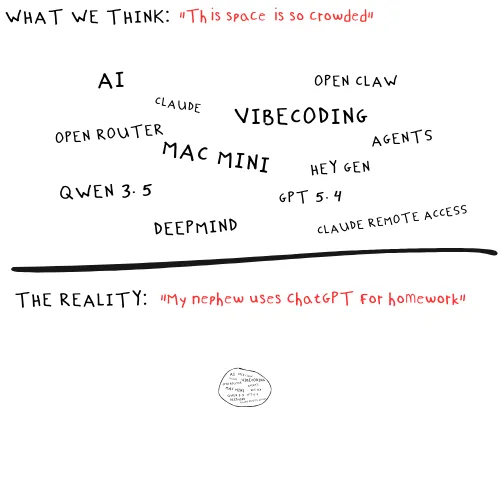 WHAT WE THINK: "This space is so crowded"
AI
OPEN CLAW
CLAUDE
VIBECODING
OPEN ROUTER
AGENTS
MAC MINI
HEY GEN
QWEN 3.5
GPT 5.4
DEEPMIND
CLAUDE REMOTE ACCESS
THE REALITY: "My nephew uses ChatGPT for homework"
AI
VIBECODING
MAC MINI